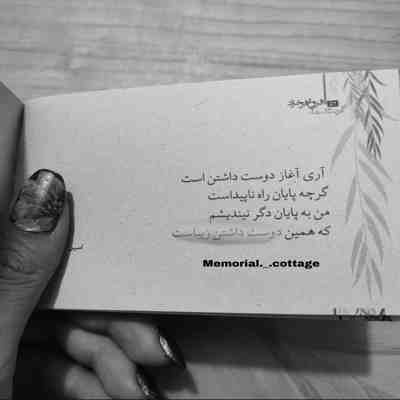 آری آغاز دوست داشتن است
گرچه پایان راه ناپیداست
من به پایان دگر نیندیشم
که همین دوست داشتن زیباست
Memorial._.cottage